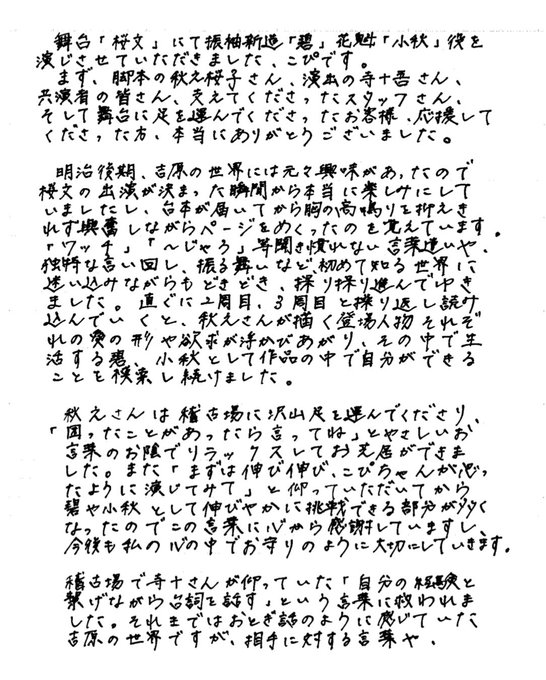 舞台「桜文」にて振袖新造「碧」花魁「小秋」役を
演じさせていただきました、こぴです。
まず、脚本の秋之桜子さん、演出の寺十吾さん、
共演者の皆さん、支えてくださったスタッフさん、
そして舞台に足を運んでくださったお客様、応援して
くださった方、本当にありがとうございました。
明治後期、吉原の世界には元々興味があったので
桜文の出演が決まった瞬間から本当に楽しみにして
いましたし、台本が届いてから胸の高鳴りを抑えき
れず興奮しながらページをめくったのを覚えています。
「ワッチ」「〜じゃろ」等聞き慣れない言葉遣いや、
独特な言い回し、振る舞いなど初めて知る世界に
迷い込みながらもどきどき、探り探り進んでゆき
ました。直ぐに2周目、3周目と繰り返し読み
込んでいくと、秋之さんが描く登場人物それぞ
れの愛の形や欲求が浮かびあがり、その中で生
活する碧、小秋として作品の中で自分ができる
ことを模索し続けました。
秋之さんは稽古場に沢山足を運んでくださり、
「困ったことがあったら言ってね」とやさしいお
言葉のお陰でリラックスしてお芝居ができま
した。また「まずは伸び伸び、こぴちゃんが思っ
たように演じてみて」と仰っていただいてから
碧や小秋として伸びやかに挑戦できる部分が多く
なったのでこの言葉に心から感謝していますし、
今後も私の心の中でお守りのように大切にしていきます。
稽古場で寺十さんが仰っていた「自分の経験と
繋げながら台詞を話す」という言葉に救われま
した。それまではおとぎ話のように感じていた
吉原の世界ですが、相手に対する言葉や、